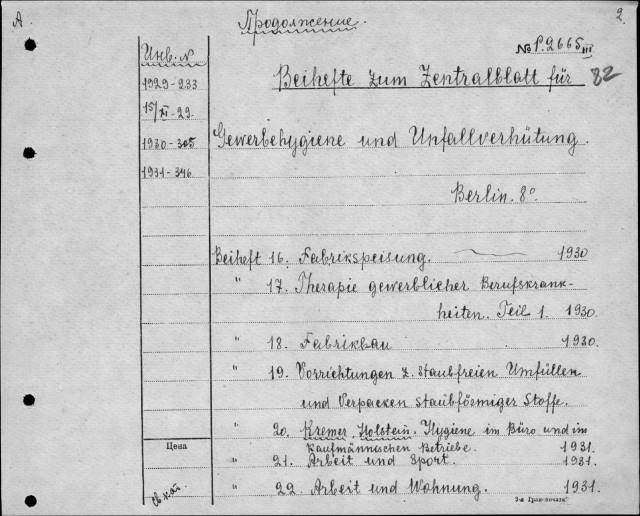 А
Продолжение.
2.
Инв. N
№ P.2665 III
1929-233
Beihefte zum Zentralblatt für
82
15/XI-29.
1930-305
Gewerbehygiene und Unfallverhütung.
1931-346
Berlin. 8°
Beiheft 16. Fabrikspeisung. 1930
" 17. Therapie gewerblicher Berufskrank-
heiten. Teil 1. 1930.
" 18. Fabrikbau 1930.
" 19. Vorrichtungen z. staubfreien Umfüllen
und Verpacken staubförmiger Stoffe.
" 20. Kremer. Holstein. Hygiene im Büro und im
Kaufmännischen Betriebe. 1931.
Цена
" 21. Arbeit und Sport. 1931.
" 22. Arbeit und Wohnung. 1931.